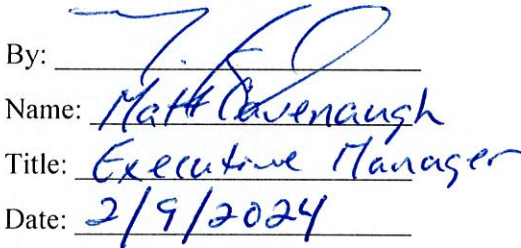 By:
Name: Matt Cavenaugh
Title: Executive Manager
Date: 2/9/2024